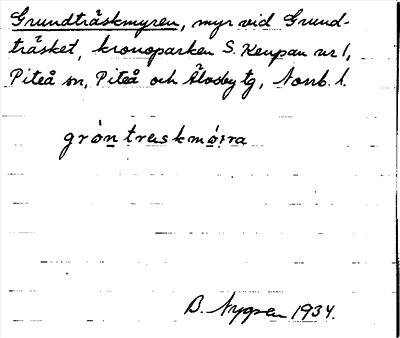 Grundträskmyren, myr vid Grund-
träsket, kronoparken S. Keupan nr 1,
Piteå sn, Piteå och Älvsby tg, Norrb. l.
gròntraskmo̱i̱ra
B. Nygren 1934.